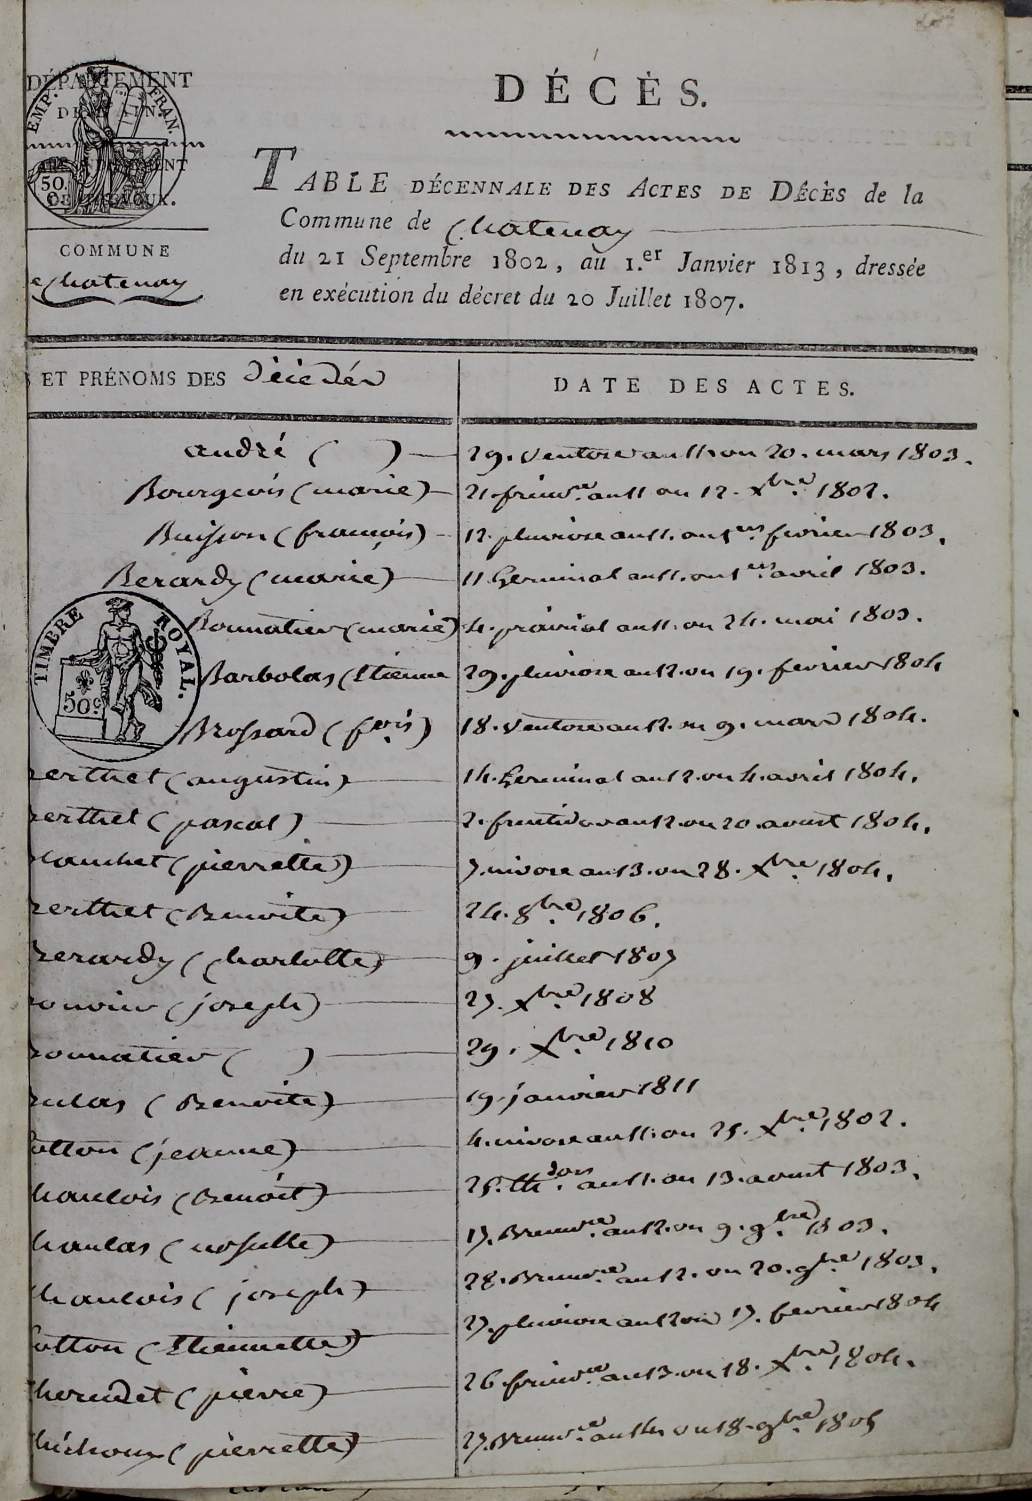 DÉPARTEMENT
DE L'AIN.
EMP. FRAN.
ARRONDISSEMENT
50
DE TRÉVOUX.
COMMUNE
e Chatenay
DÉCÈS.
TABLE DÉCENNALE DES ACTES DE DÉCÈS de la
Commune de Chatenay
du 21 Septembre 1802, au 1.er Janvier 1813, dressée
en exécution du décret du 20 Juillet 1807.
ET PRÉNOMS DES décédés DATE DES ACTES.
andré ( ) 29. ventose an 11. ou 20. mars 1803.
Bourgeois (marie) 21. frimre. an 11 ou 12. Xbre. 1802.
Buisson (francois) 12. pluviose an 11. ou 1er fevrier 1803.
Berardy (marie) 11. Germinal an 11. ou 1er avril 1803.
Bonnatier (marie) 4. prairial an 11. ou 24. mai 1803.
TIMBRE ROYAL.
50c
Barbolas (Etienne 29. pluviose an 12. ou 19. fevrier 1804
Brossard (fois) 18. ventose an 12. ou 9. mars 1804.
berthet (augustin) 14. Germinal an 12. ou 4. avril 1804.
berthet (pascal) 2. fructidor an 12. ou 20. aoust 1804.
lanchet (pierrette) 7. nivose an 13. ou 28. Xbre. 1804.
berthet (Benoite) 24. 8bre. 1806.
Berardy (Charlotte) 9. juillet 1807
ouvier (joseph) 27. Xbre. 1808
onnatier ( ) 29. Xbre. 1810
ulas (Benoite) 19. janvier 1811
otton (jeanne) 4. nivose an 11. ou 25. Xbre. 1802.
hanlois (Benoit) 25. thdor. an 11. ou 13. aoust 1803.
hanlas (nosulle) 17. Brumre. an 12. ou 9. 9bre. 1803.
hanlois (joseph) 28. Brumre. an 12. ou 20. 9bre. 1803.
otton (Etiennette) 27. pluviose an 12 ou 17. fevrier 1804
(pierre) 26. frimre. an 13. ou 18. Xbre. 1804.
hichoux (pierrette) 27. Brumre. an 14 ou 18. 9bre. 1805